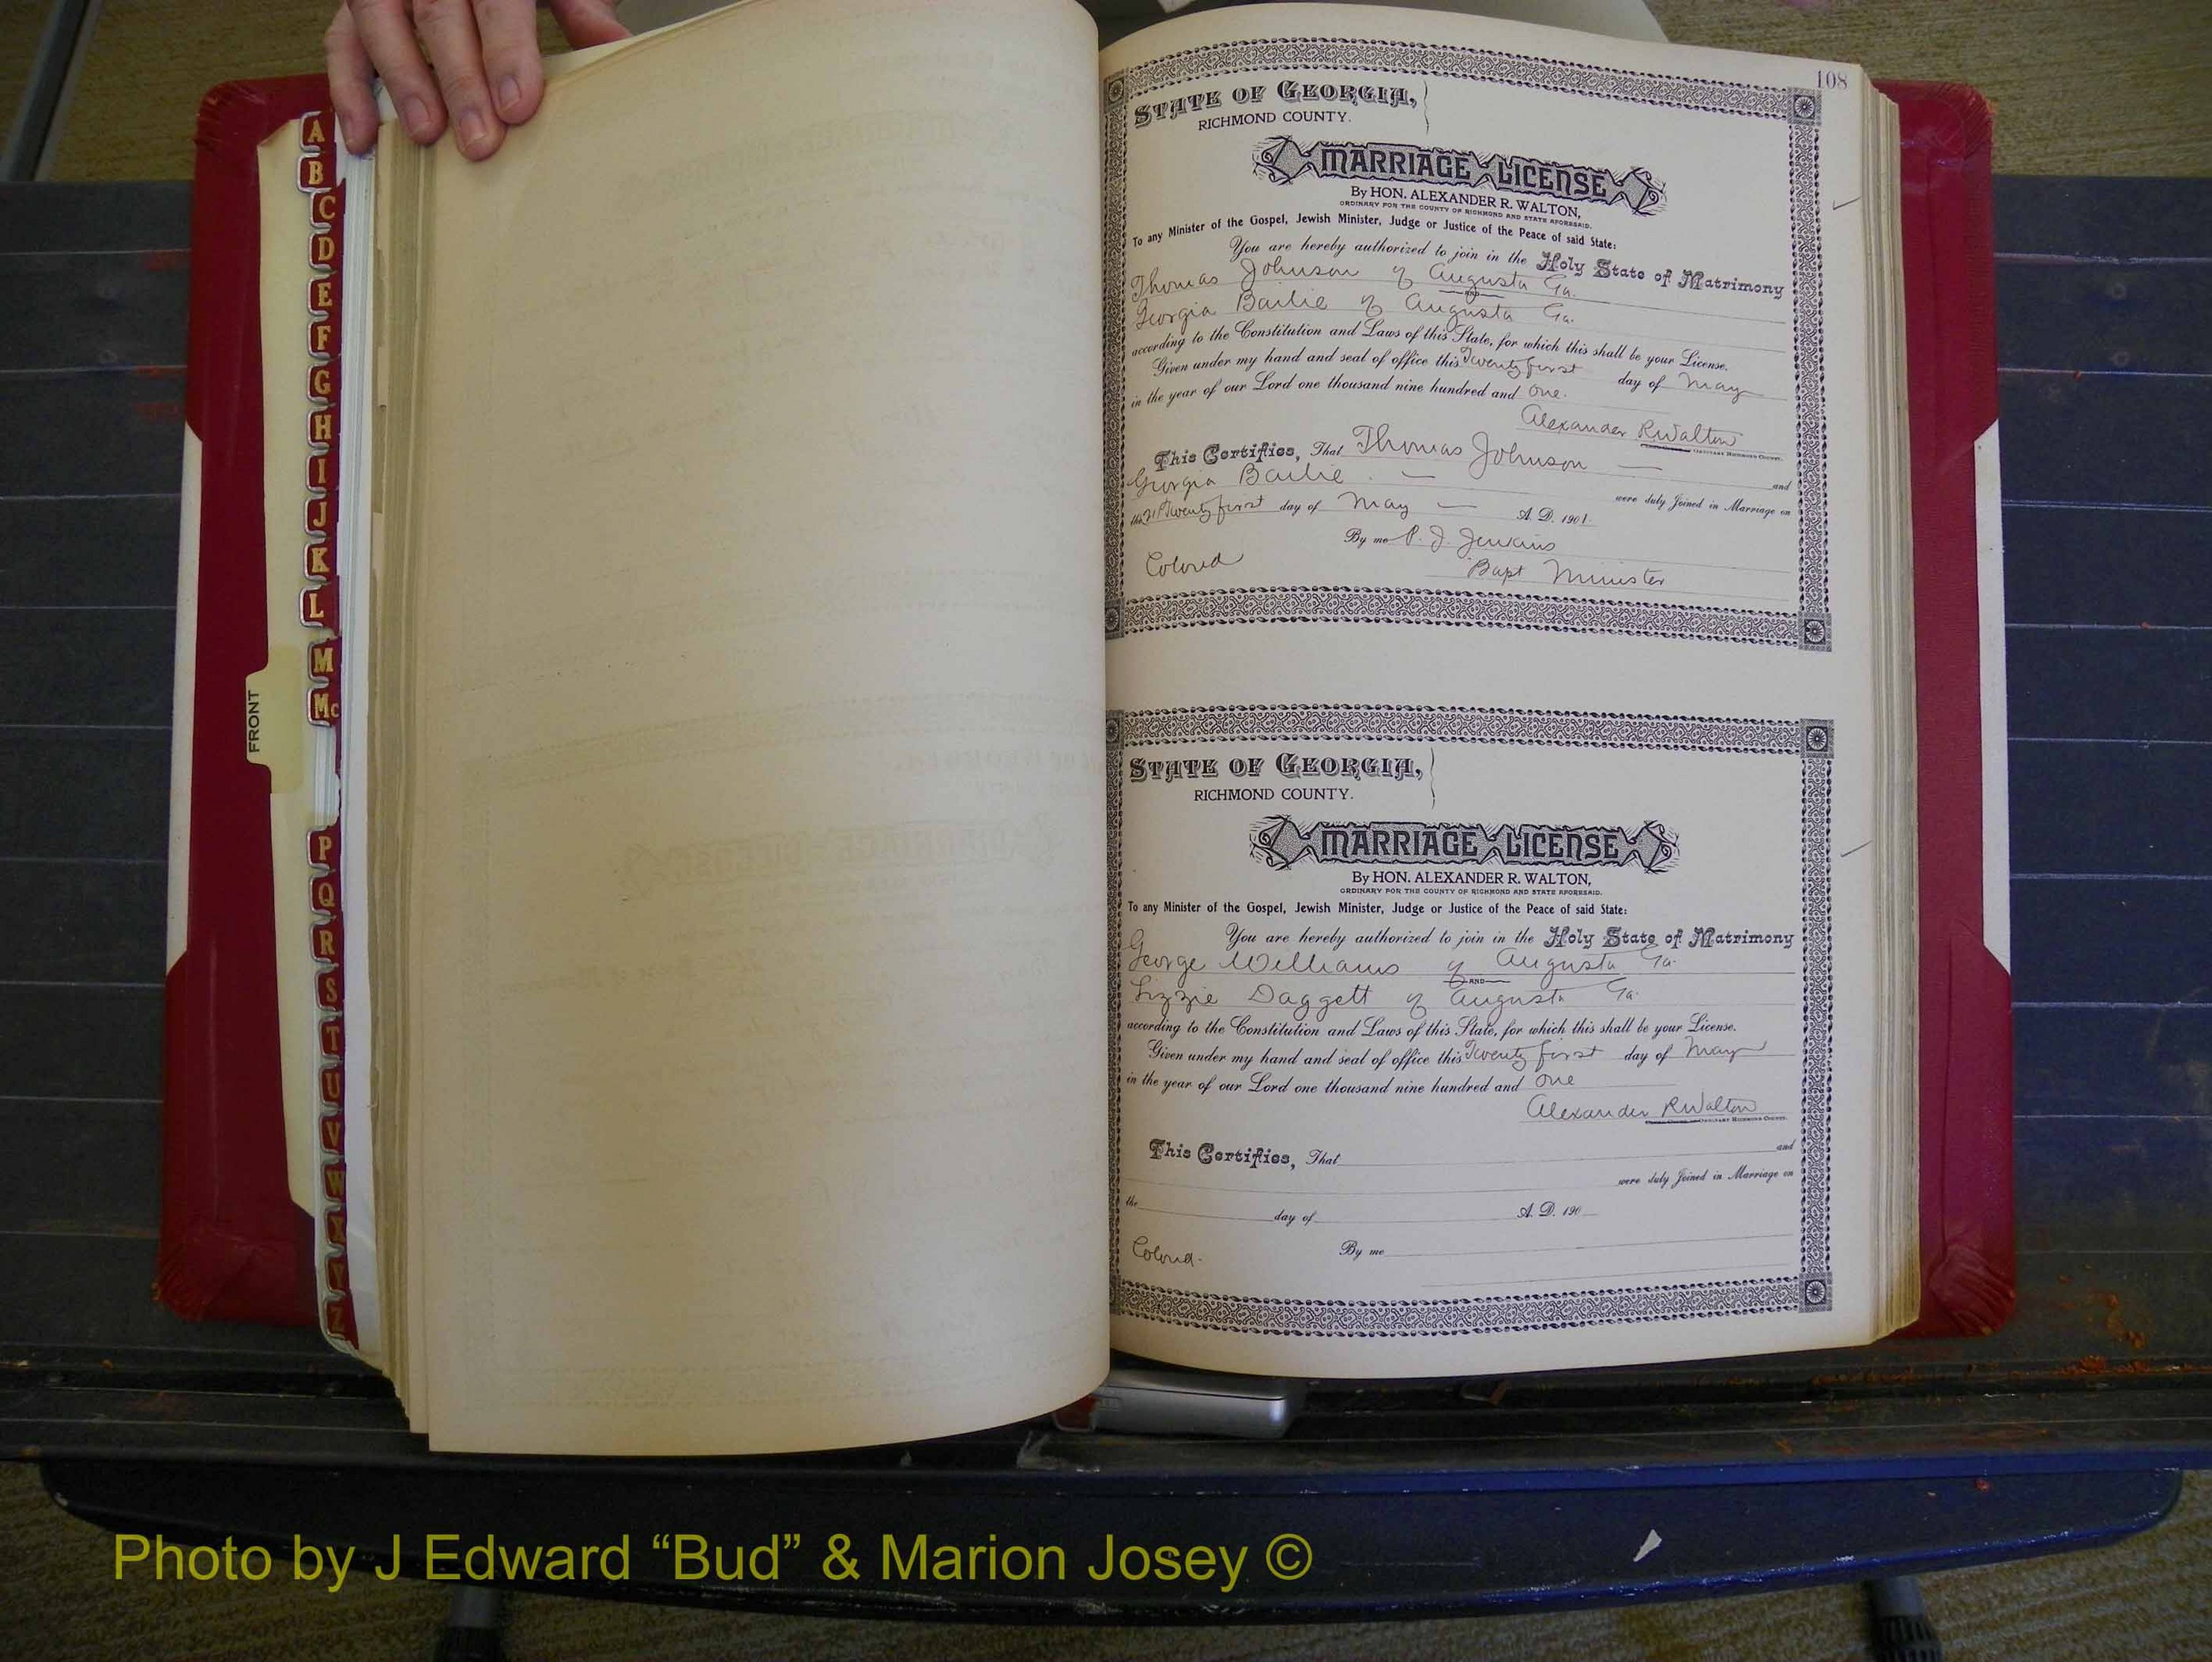 A
B
C
D
E
F
G
H
I
J
K
L
M
Mc
FRONT
P
Q
R
S
T
U
V
W
X
Y
Z
108
STATE OF GEORGIA,
RICHMOND COUNTY.
MARRIAGE LICENSE
By HON. ALEXANDER R. WALTON,
ORDINARY FOR THE COUNTY OF RICHMOND AND STATE AFORESAID.
To any Minister of the Gospel, Jewish Minister, Judge or Justice of the Peace of said State:
You are hereby authorized to join in the Holy State of Matrimony
Thomas Johnson of Augusta Ga.
AND
Georgia Bailie of Augusta Ga.
according to the Constitution and Laws of this State, for which this shall be your License.
Given under my hand and seal of office this Twenty first day of May
in the year of our Lord one thousand nine hundred and one.
Alexander R Walton
ORDINARY RICHMOND COUNTY.
This Certifies, That Thomas Johnson — and
Georgia Bailie — were duly Joined in Marriage on
the 21st Twenty first day of May — A. D. 1901.
By me P. J. Jenkins
Colored Bapt Minister
STATE OF GEORGIA,
RICHMOND COUNTY.
MARRIAGE LICENSE
By HON. ALEXANDER R. WALTON,
ORDINARY FOR THE COUNTY OF RICHMOND AND STATE AFORESAID.
To any Minister of the Gospel, Jewish Minister, Judge or Justice of the Peace of said State:
You are hereby authorized to join in the Holy State of Matrimony
George Williams of Augusta Ga.
AND
Lizzie Daggett of Augusta Ga.
according to the Constitution and Laws of this State, for which this shall be your License.
Given under my hand and seal of office this Twenty first day of May
in the year of our Lord one thousand nine hundred and one
Alexander R Walton
ORDINARY RICHMOND COUNTY.
This Certifies, That and
were duly Joined in Marriage on
the day of A. D. 190
Colored. By me
Photo by J Edward “Bud” & Marion Josey ©